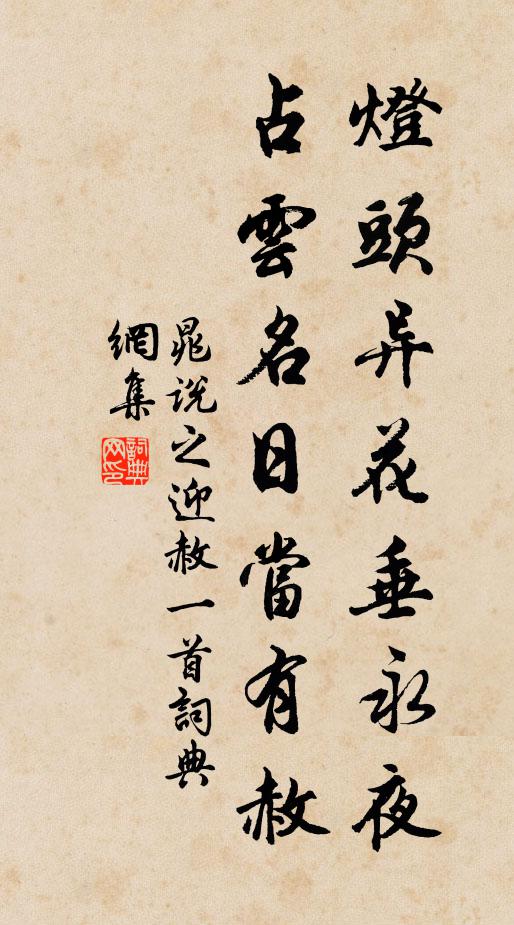 燈頭异花垂永夜
占雲名日當有赦
晁說之迎赦一首詞典
網集
詞典网印